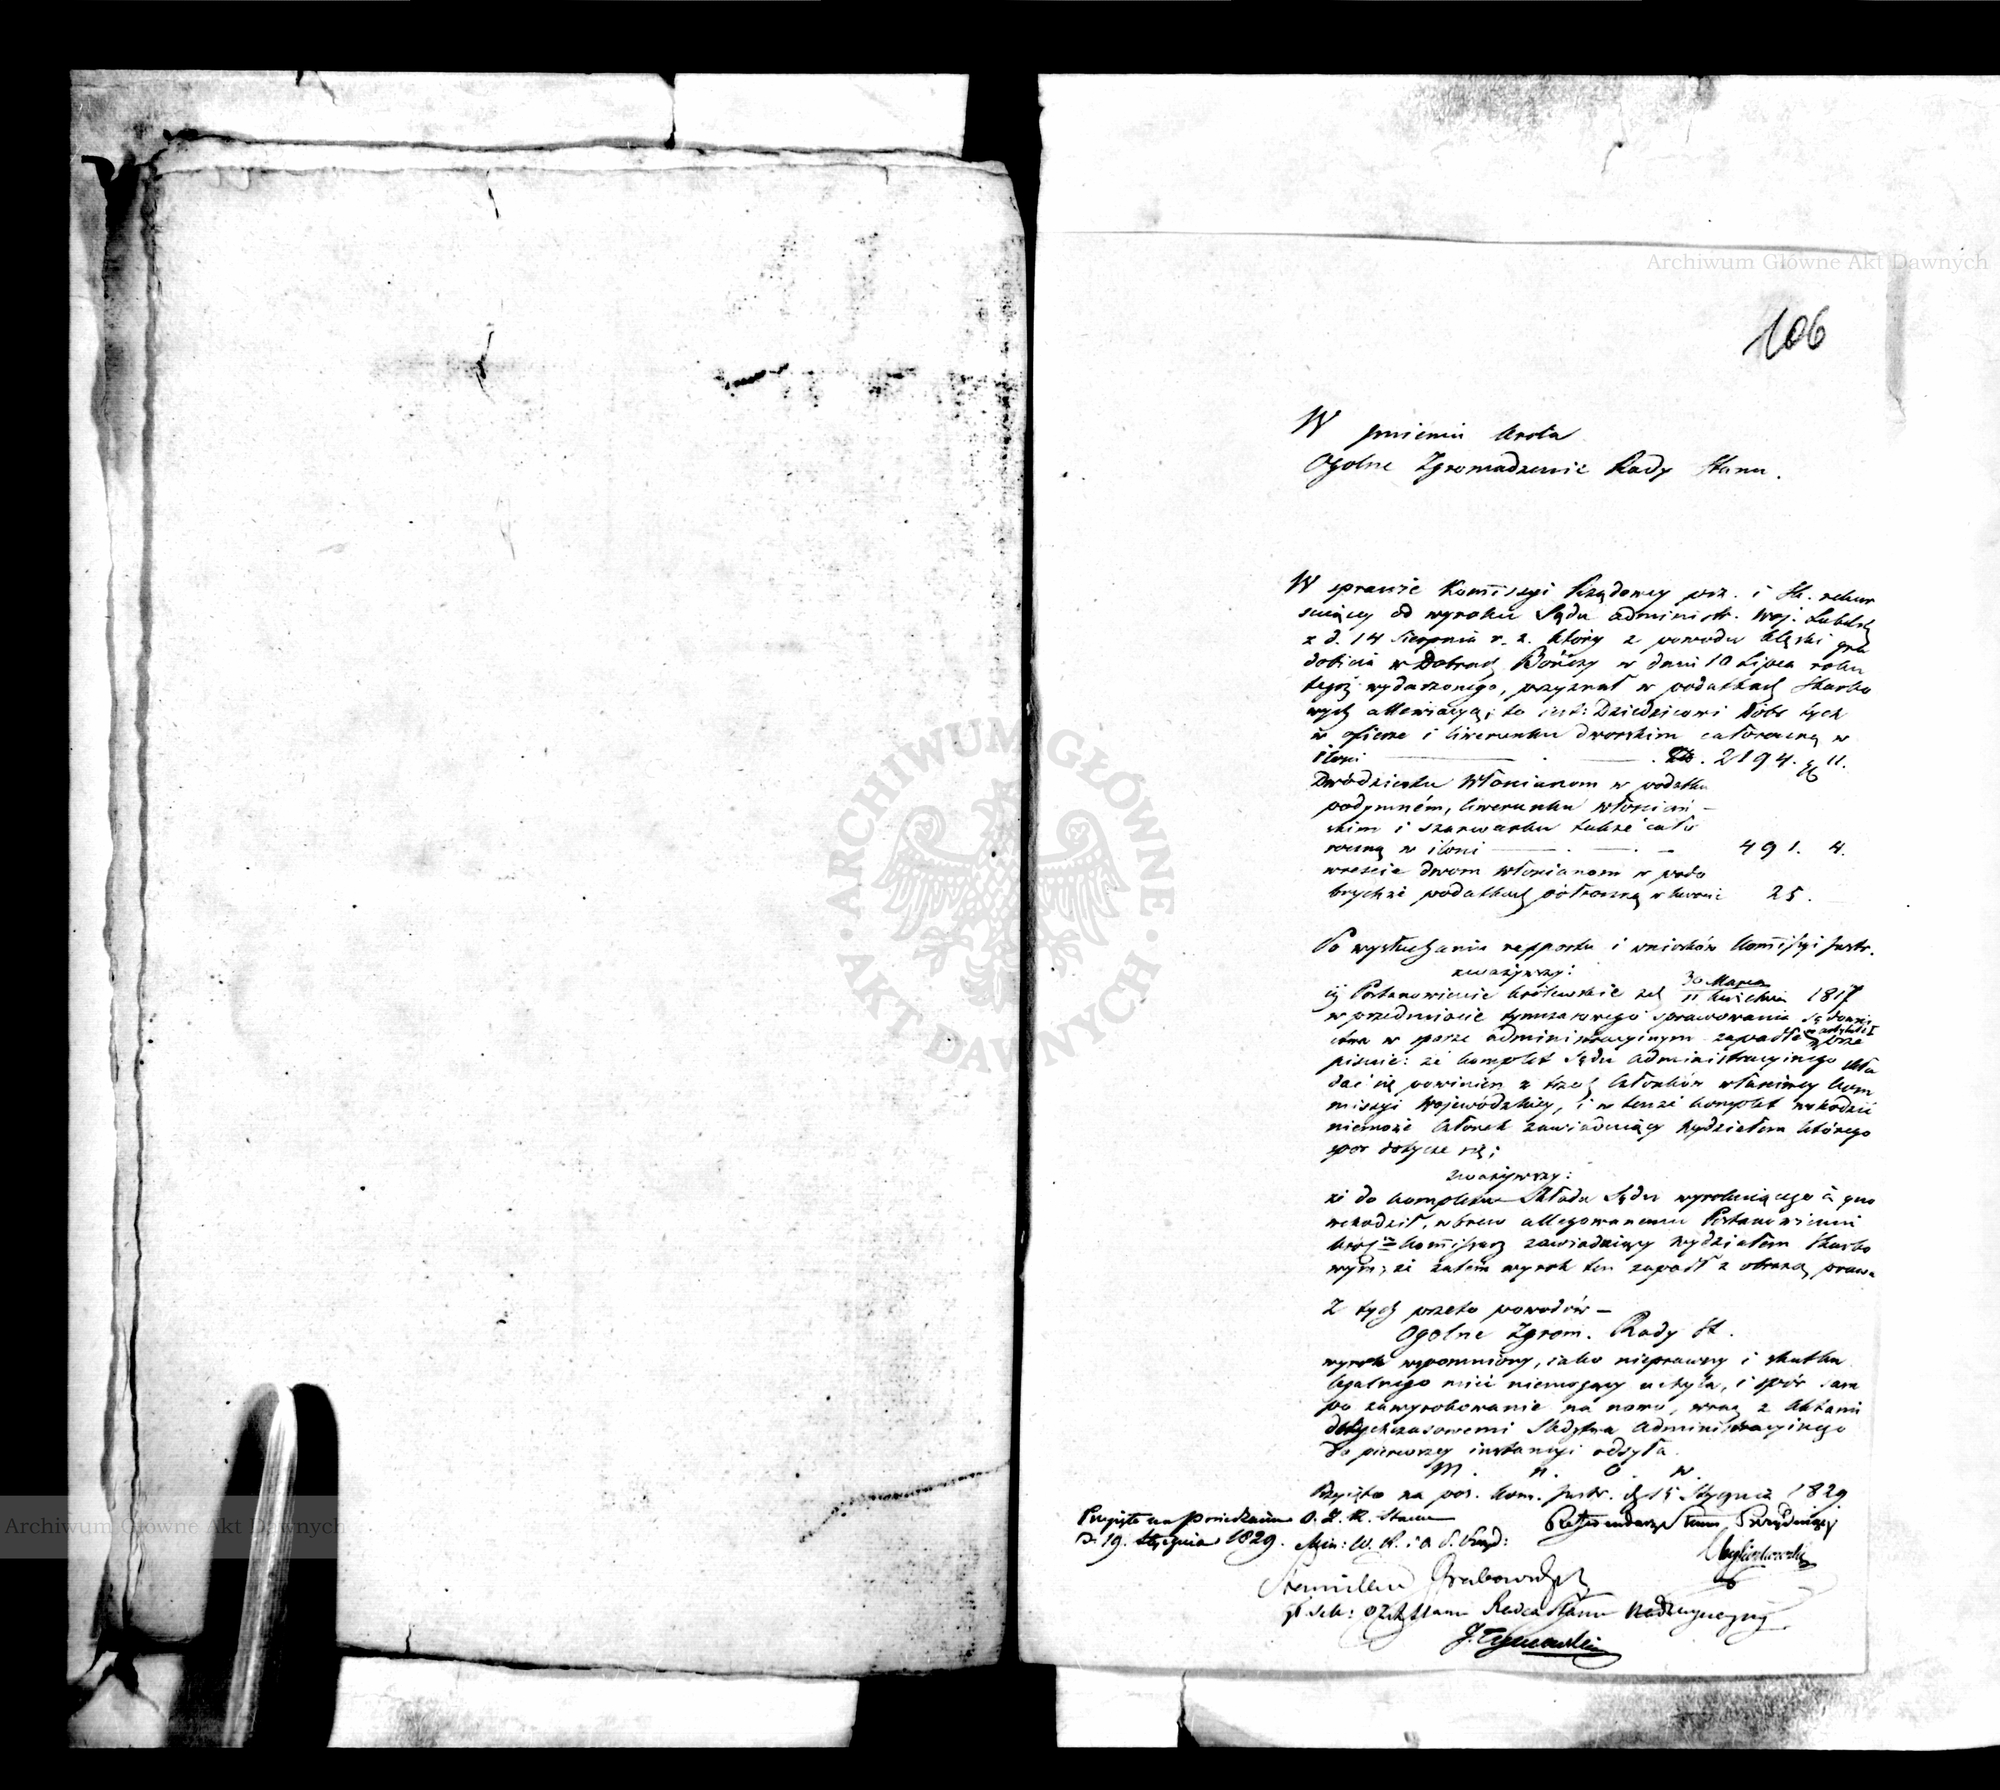 Archiwum Główne Akt Dawnych
106
W Jmieniu Krola
Ogolne Zgromadzenie Rady Stanu.
W sprawie Kommissyi Rządowey prz. i Sk. rekur
suiącey od wyroku Sądu administr. Woj. Lubelsk
z d. 14 Sierpnia r. z. który z powodu klęski gra
dobicia w Dobrach Bończy w dniu 10 Lipca roku
tegoż wydarzonego, przyznał w podatkach Skarbo
wych allewiacyą; to iest: Dziedzicowi Dóbr tych
w ofierze i liwerunku dworskim całoroczną w
Iłości Zło. 2194. g 11.
Dwódziestu Włościanom w podatku
podymném, liwerunku włościań-
skim i szarwarku także cało
roczną w ilości 491. 4.
wreście dwom włościanom w podo
bnychże podatkach półroczną w kwocie 25.
Po wysłuchaniu rapportu i wniosków Kommissyi Instr.
zważywszy:
iż Postanowienie królewskie z d. 30 Marca
11 Kwietnia 1817
w przedmiocie tymczasowego sprawowania sądowni
ctwa w sporze administracyinym zapadłe w artykule I prze
pisuie: że komplet Sądu Administracyinego skła
dać się powinien z trzech Członków właściwey Kom
missyi Woiewódzkiey, i w tenże komplet wchodzić
niemoże Członek zawiaduiący Wydziałem którego
spor dotycze się;
zważywszy:
że do kompletu Składu Sądu wyrokuiącego à quo
wchodził, wbrew allegowanemu Postanowieniu
Król. Kommissarz zawiaduiący wydziałem Skarbo
wym, że zatem wyrok ten zapadł z obrazą prawa
Z tych przeto powodów –
Ogolne Zgrom. Rady St.
wyrok wspomniony, iako nieprawny i skutku
legalnego mieć niemogący uchyla, i spór sam
po zawyrokowanie na nowo, wraz z Aktami
dotychczasowemi Sądztwa Administracyinego
do pierwszey instancyi odsyła.
M. n. O. w.
Przyięto na pos. Kom. Instr. d. 15 Stycznia 1829
Przyięto na Posiedzeniu O. Z. R. Stanu
D. 19. Stycznia 1829.
Referendarz Stanu Prezyduiący
Min: W. R. i O. P. Prezyd:
Stanisław Grabowski
Radca Stanu Nadzwyczayny
J. Tymowski
ARCHIWUM GŁÓWNE · AKT DAWNYCH ·
Archiwum Główne Akt Dawnych